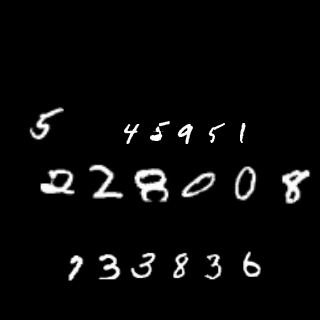 5
45951
228008
733836